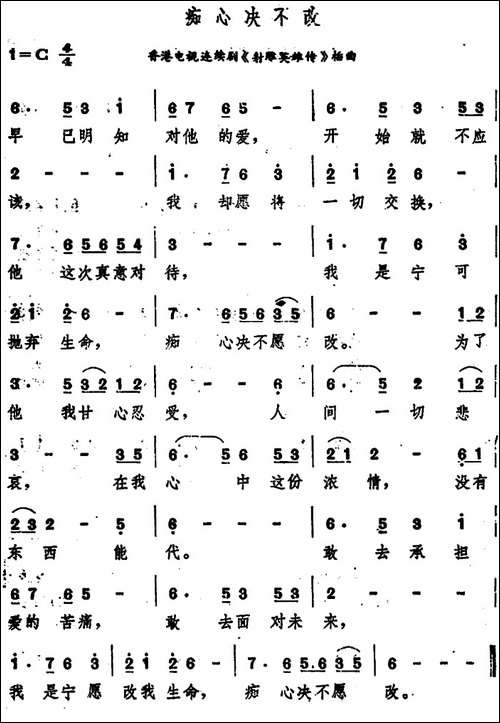 痴心决不改
1=C 4/4
香港电视连续剧《射雕英雄传》插曲
6· 5 3 i | 6 7 6 5 6 - | 6· 5 3 5 3
早 已明知 对他的爱， 开始就不应
2 - - - | i· 7 6 3 | 2 i 2 6 -
该， 我却愿将 一切交换，
7· 6 5 6 5 4 | 3 - - - | i· 7 6 3
他 这次真意对 待， 我是宁可
2 i 2 6 - | 7· 6 5 6 3 5 | 6 - - 1 2
抛弃生命， 痴 心决不愿 改。 为了
3· 5 3 2 1 2 | 6 - - 6 | 6· 5 2 1 2
他 我甘心忍 受， 人 间一切悲
3 - - 3 5 | 6· 5 6 5 3 | 2 1 2 - 6 1
哀， 在我 心中这份 浓情， 没有
2 3 2 - 5 | 6 - - - | 6· 5 3 i
东西能 代。 敢去承担
6 7 6 5 - | 6· 5 3 5 3 | 2 - - -
爱的苦痛， 敢 去面对未 来，
i· 7 6 3 | 2 i 2 6 - | 7· 6 5·6 3 5 | 6 - -
我是宁愿 改我生命， 痴 心决不愿 改。